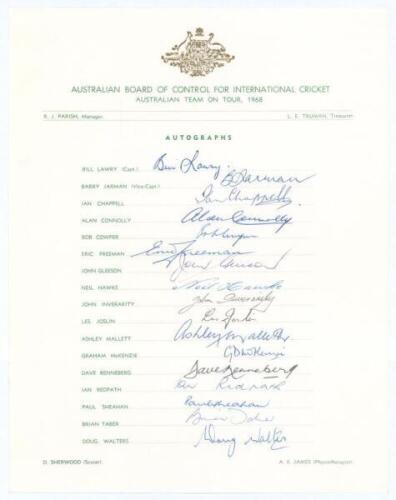 AUSTRALIAN BOARD OF CONTROL FOR INTERNATIONAL CRICKET
AUSTRALIAN TEAM ON TOUR, 1968
R. J. PARISH, Manager L. E. TRUMAN, Treasurer
AUTOGRAPHS
BILL LAWRY (Capt.) Bill Lawry
BARRY JARMAN (Vice-Capt.) B Jarman
IAN CHAPPELL Ian Chappell
ALAN CONNOLLY Alan Connolly
BOB COWPER
ERIC FREEMAN Eric Freeman
JOHN GLEESON John Gleeson
NEIL HAWKE Neil Hawke
JOHN INVERARITY John Inverarity
LES JOSLIN Les Joslin
ASHLEY MALLETT Ashley Mallett
GRAHAM McKENZIE G D McKenzie
DAVE RENNEBERG Dave Renneberg
IAN REDPATH Ian Redpath
PAUL SHEAHAN Paul Sheahan
BRIAN TABER Brian Taber
DOUG. WALTERS Doug Walters
D. SHERWOOD (Scorer) A. E. JAMES (Physio-Manager)